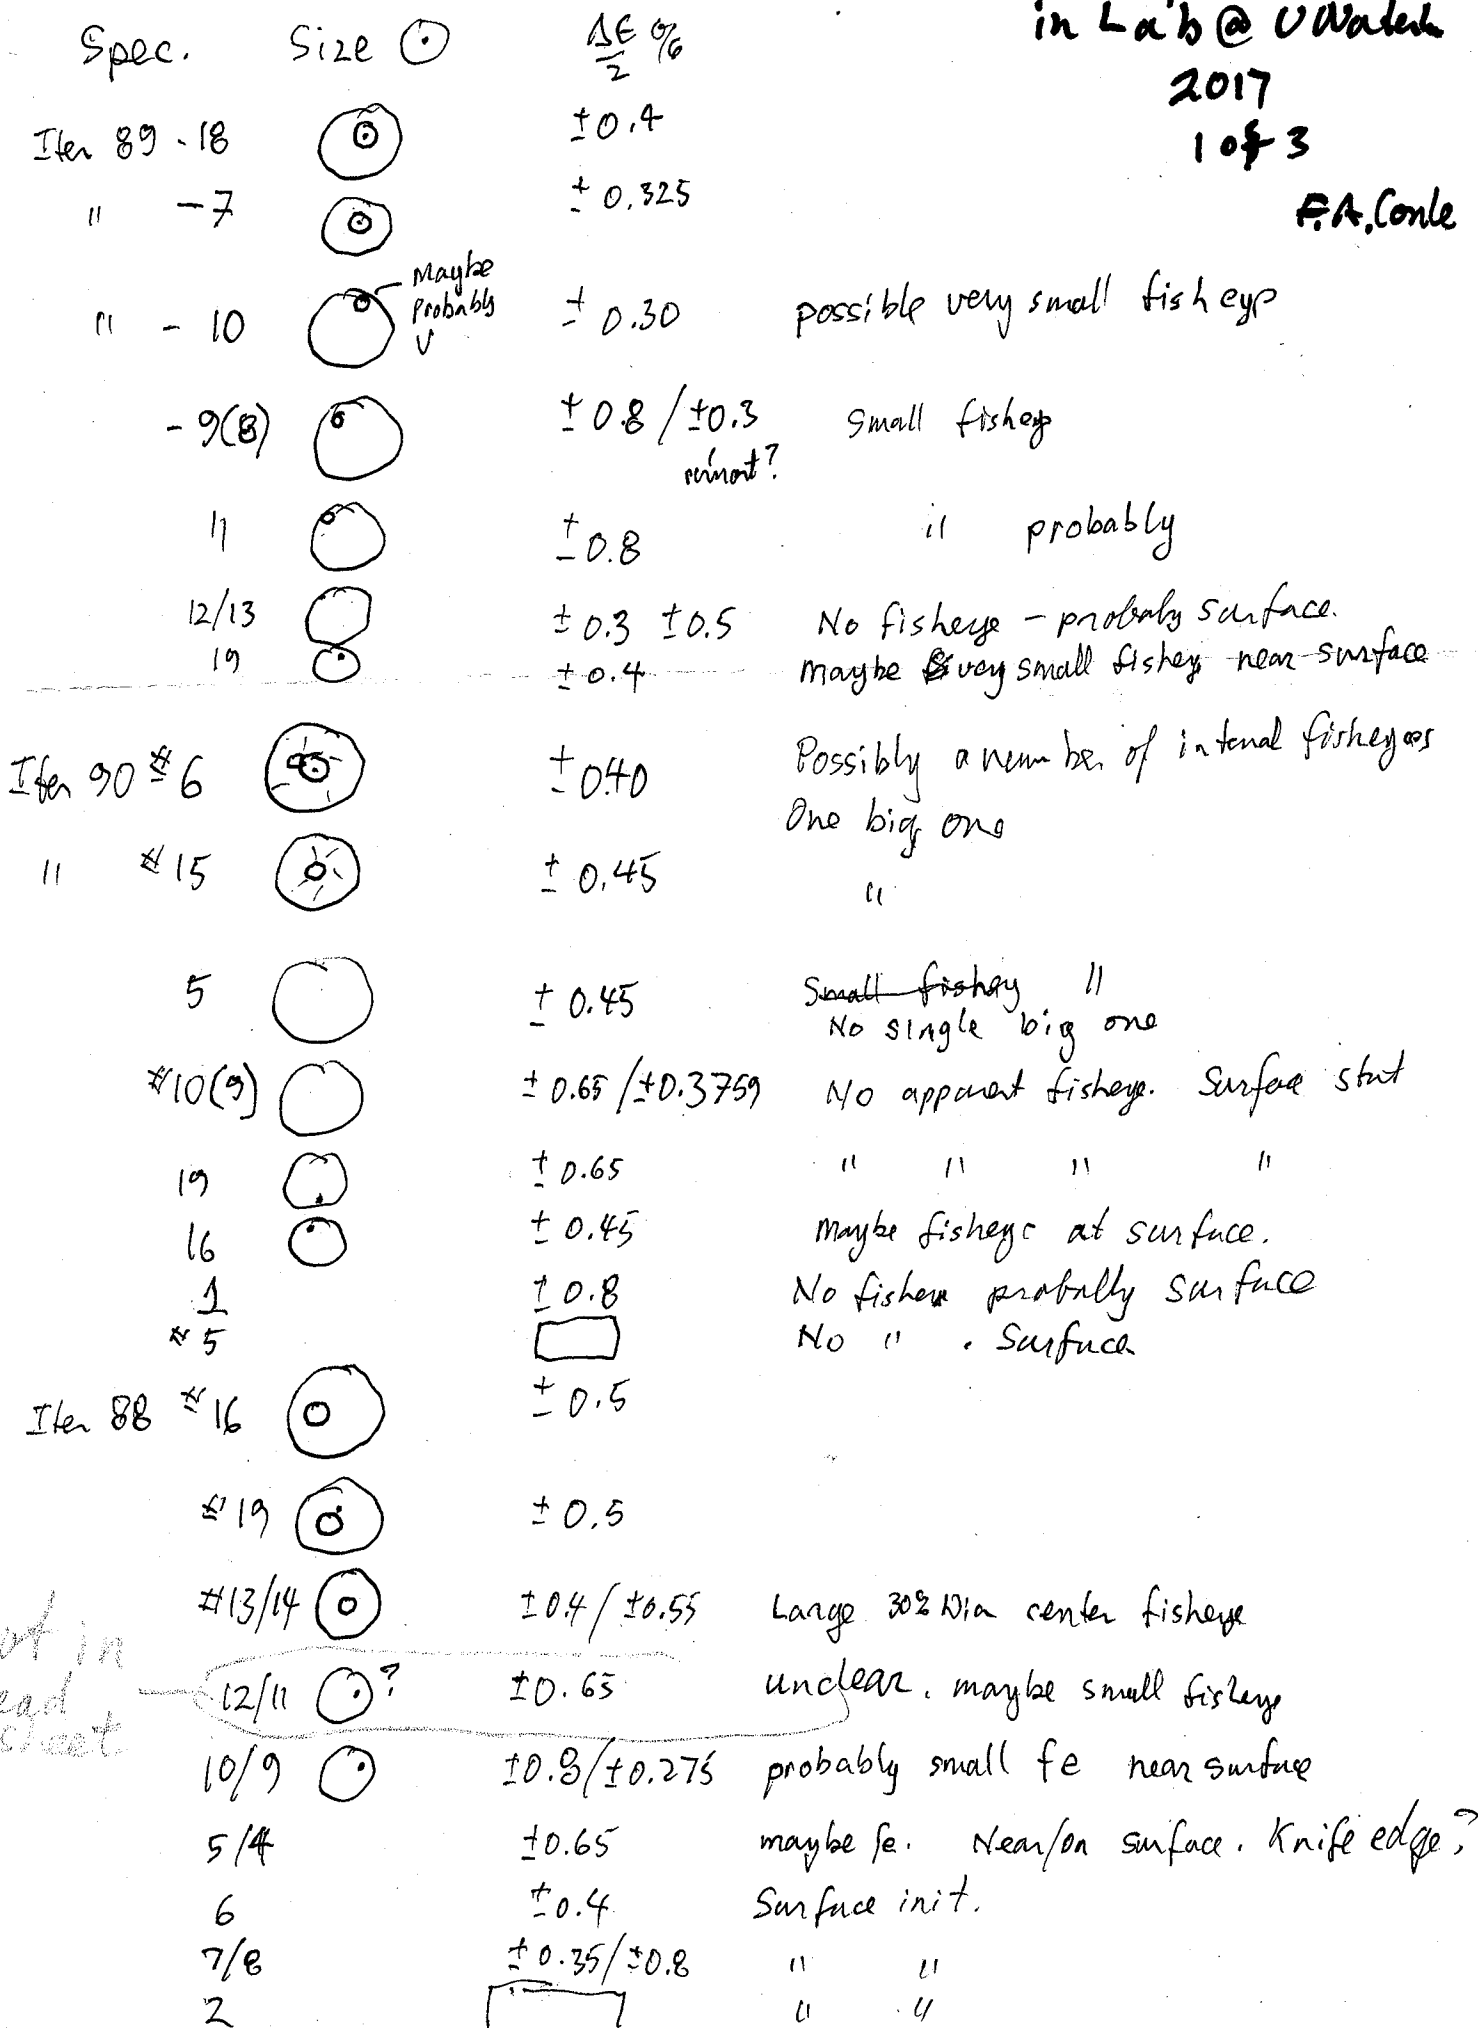 in Lab @ UWaterloo
2017
1 of 3
F.A. Conle
Spec. Size ⊙ ΔE/2 %
Iter 89 - 18 ±0.4
" - 7 ± 0.325
" - 10 Maybe Probably ± 0.30 possible very small fisheye
- 9(8) ± 0.8 / ±0.3 Small fisheye
?
11 ± 0.8 " probably
12/13 ± 0.3 ± 0.5 No fisheye - probaly surface.
19 ± 0.4 maybe very small fisheye near surface
Iter 90 # 6 ± 0.40 Possibly a number of internal fisheyes
One big one
" # 15 ± 0.45 "
5 ± 0.45 Small fishey "
No single big one
#10(9) ± 0.65 / ±0.3759 No apparent fisheye. Surface start
19 ± 0.65 " " " "
16 ± 0.45 maybe fisheye at surface.
1 ± 0.8 No fisheye probally surface
# 5 No " . Surface
Iter 88 # 16 ± 0.5
# 19 ± 0.5
#13/14 ± 0.4 / ±0.55 Large 30% Dia center fisheye
not in
ead
sheet
12/11 ? ±0.65 unclear, maybe small fisheye
10/9 ±0.8/±0.275 probably small fe near surface
5/4 ±0.65 maybe fe. Near/on surface. Knife edge?
6 ±0.4 Surface init.
7/8 ±0.35/±0.8 " "
2 " "